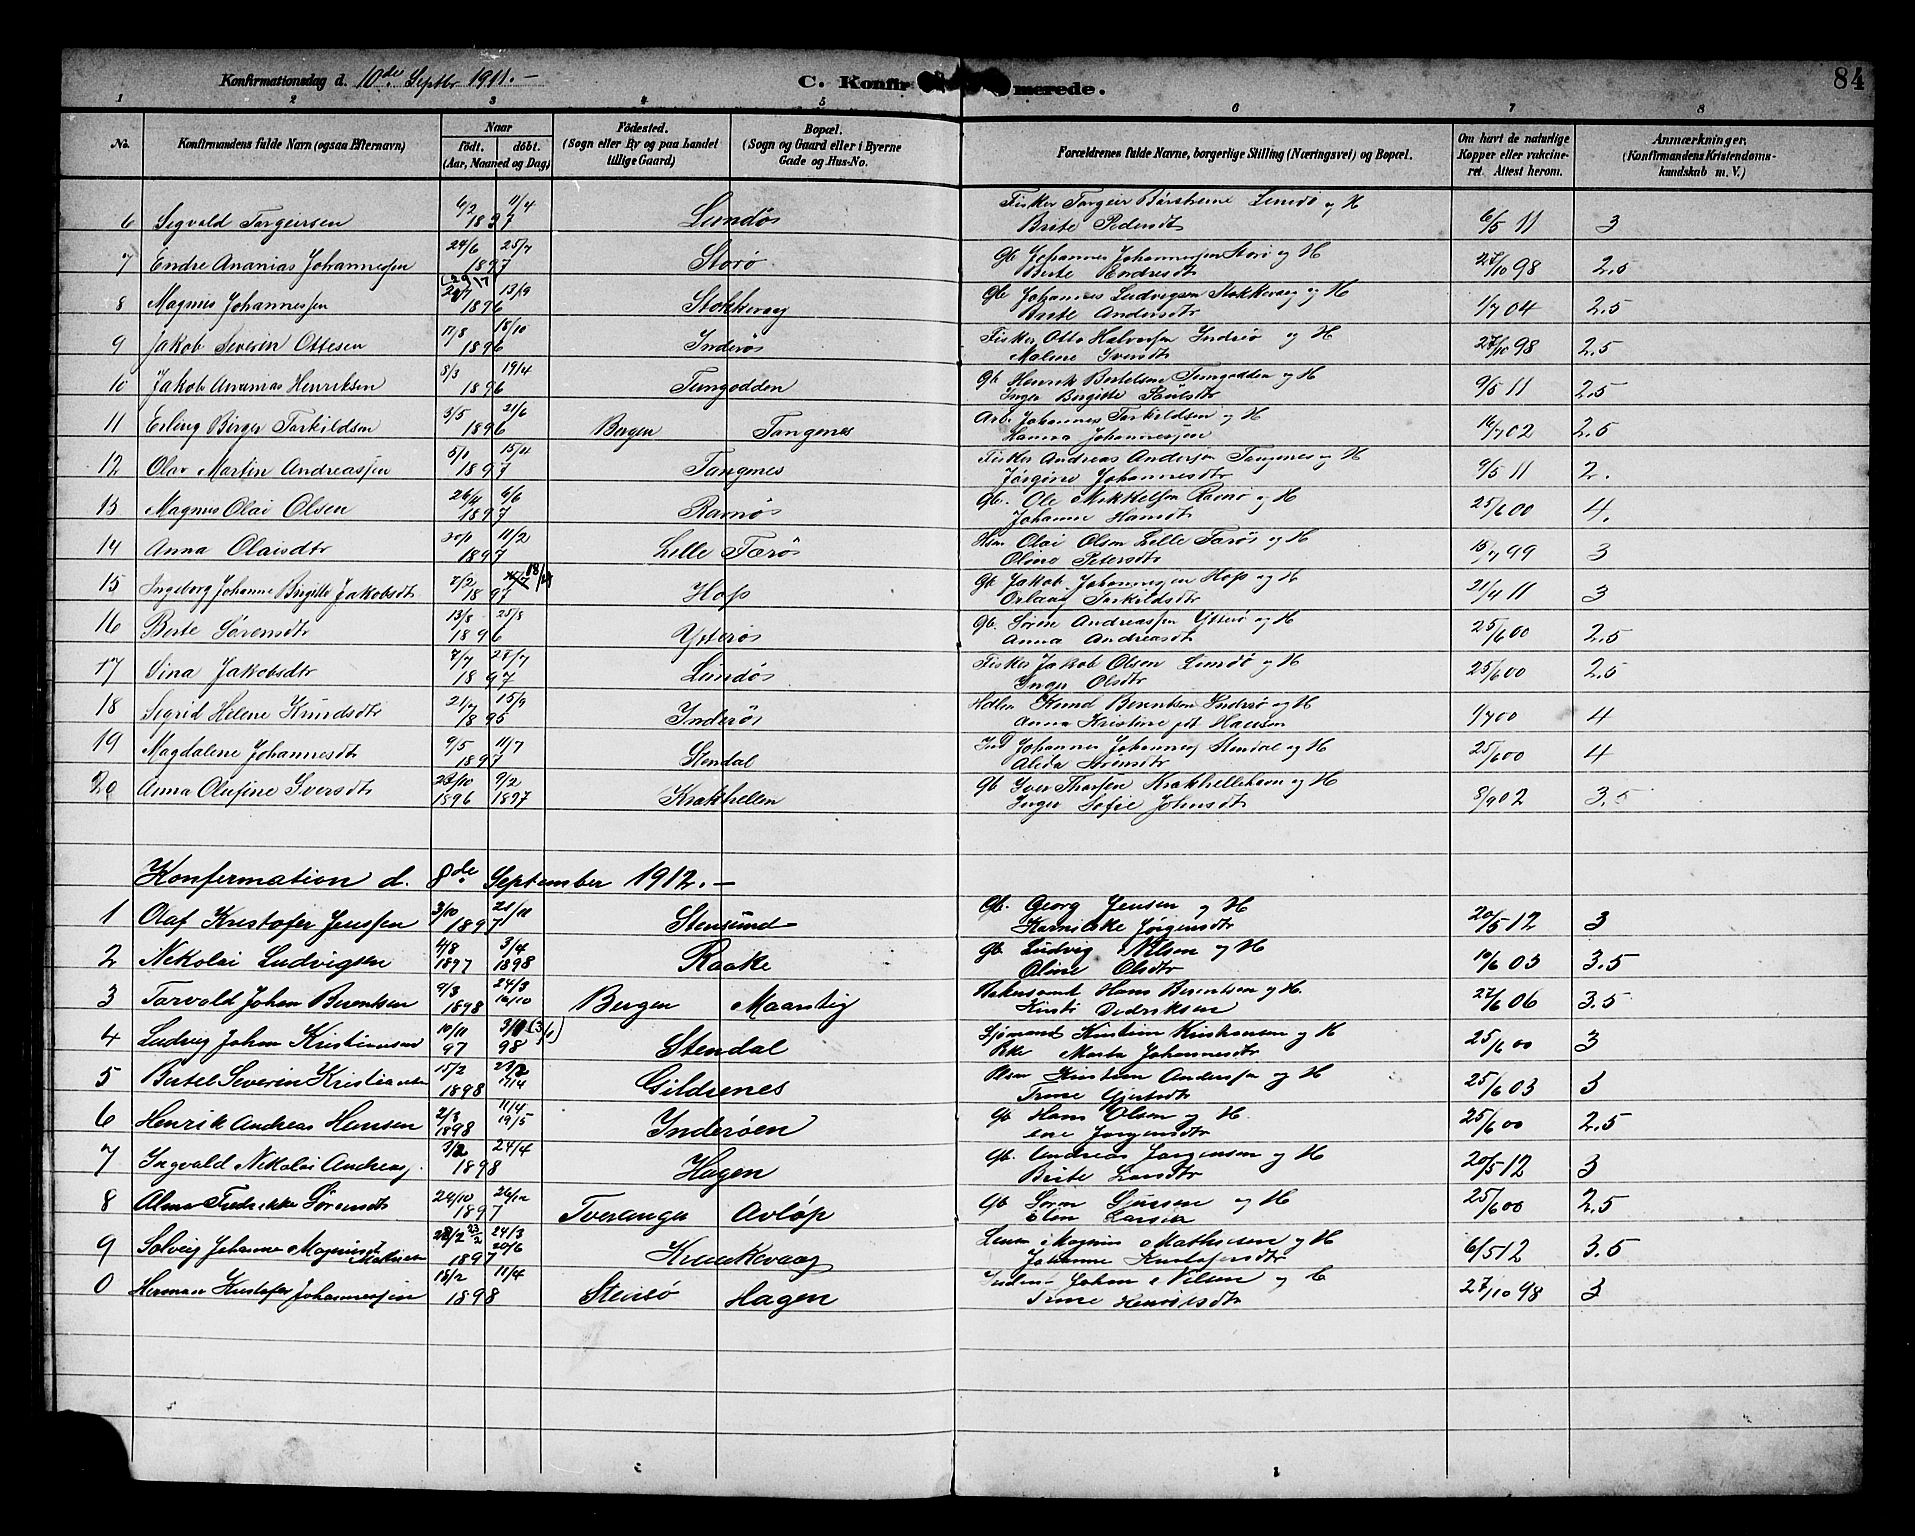 Konfirmationsdag d. 10de Septbr 1911. –
C. Konfirmerede.
84
1 2 3 4 5 6 7 8
No. Konfirmandens fulde Navn (ogsaa Efternavn) Naar födt. döbt. (Aar, Maaned og Dag) Födested. (Sogn eller By og paa Landet tillige Gaard) Bopæl. (Sogn og Gaard eller i Byerne Gade og Hus-No. Forældrenes fulde Navne, borgerlige Stilling (Næringsvei) og Bopæl. Om havt de naturlige Kopper eller vakcineret. Attest herom. Anmærkninger. (Konfirmandens Kristendomskundskab m. V.)
6 Sigvald Torgeirsen 6/2 11/4 1897 Lundøs Fisker Torgeir Lundø og H Brite Pedersdtr 6/5 11 3
7 Endre Ananias Johannessen 24/6 25/7 1897 Storø Gb Johannes Johannessen Storø og H Brite Endresdtr 27/10 98 2.5
8 Magnus Johannessen (29/7) 13/9 1896 Stokkevaag Gb Johannes Ludvigsen Stokkevaag og H Brite Andersdtr 1/7 04 2.5
9 Jakob Severin Ottesen 11/8 18/10 1896 Inderøs Fisker Otto Halvorsen Indreø og H Malene Iversdtr 27/10 98 2.5
10 Jakob Ananias Henriksen 5/3 19/4 1896 Tungodden Gb Henrik Bertelsen Tungodden og H Inger Birgitte Poulsdtr 9/5 11 2.5
11 Erling Birger Torkildsen 3/5 21/6 1896 Bergen Tangenes Arb. Johannes Torkildsen og H Hanna Johannessen 16/7 02 2.5
12 Olav Martin Andreassen 5/1 15/4 1897 Tangenes Fisker Andreas Andersen Tangenes og H Jørgine Johannesdtr 9/5 11 2.
13 Magnus Olai Olsen 26/4 6/6 1897 Ramøs Gb. Ole Mikkelsen Ramø og H Johanne Hansdtr 25/6 00 4.
14 Anna Olaisdtr 30/1 11/2 1897 Lille Færøs Hsm Olai Olsen Lille Færøs og H Oline Petersdtr 15/7 99 3
15 Ingeborg Johanne Birgitte Jakobsdtr 7/2 18/4 1897 Hop Gb Jakob Johannessen Hop og H Orlaug Torkildsdtr 21/4 11 3
16 Berte Sørensdtr 13/8 25/8 1896 Ytterøs Gb. Søren Andreassen Ytterø og H Anna Andreasdtr 25/6 00 2.5
17 Sina Jakobsdtr 7/7 27/7 1897 Lundøs Fisker Jakob Olsen Lundø og H Inger Olsdtr 25/6 00 2.5
18 Sigrid Helene Knudsdtr 21/7 15/9 1895 Inderøs Hdlm Knud Berentsen Indreø og H Anna Kristine f. Hansen 1/7 00 4
19 Magdalene Johannesdtr 9/5 11/7 1897 Stendal Ind Johannes Johannes Stendal og H Alida Sørensdtr 25/6 00 4
20 Anna Olufine Iversdtr 23/10 1896 9/2 1897 Krakhellen Gb Iver Thorsen Krakhellehavn og H Inger Sofie Johnsdtr 8/9 02 3.5
Konfermation d. 8de September 1912. –
1 Olaf Kristofer Jenssen 3/10 21/11 1897 Stensund Gb. Georg Jensen og H Jørgensdtr 20/5 12 3
2 Nikolai Ludvigsen 4/8 1897 3/4 1898 Raake Gb Ludvig Nilsen og H Oline Olsdtr 10/6 03 3.5
3 Torvald Johan Berentsen 9/3 1898 24/3 16/10 Bergen Maarstig Hans Berentsen og H. Kirsti Dedriksen 27/6 06 3.5
4 Ludvig Johan Kristiansen 10/11 97 98 Stendal Sjømand Kristian Kristiansen og H Marta Johannesdtr 25/6 00 3
5 Bertel Severin Kristiansen 15/2 1898 17/4 Gildrenes Kristian Anderssen og H Trine Gjertsdtr 25/6 03 3
6 Henrik Andreas Hansen 2/3 1898 11/4 19/5 Inderøen Gb Hans Olsen og H. Jørgensdtr 25/6 00 2.5
7 Ingvald Nikolai Andreas 24/4 1898 Hagen Gb. Andreas Jørgensen og H Brite Larsdtr 20/5 12 3
8 Alma Fredrikke Sørensdtr 24/10 26/12 1897 Tveranger Avløp Gb Søren og H Elen Larsen 25/6 00 2.5
9 Solveig Johanne Magnusdt Mathisen 23/2 24/3 20/6 1897 Krakkevaag Magnus Mathisen og H Johanne Kristofersdtr 6/5 12 3.5
0 Herman Kristofer Johannessen 18/2 11/4 1898 Steinsø Hagen Johan Nilsen og Trine Henriksdtr 27/10 98 3